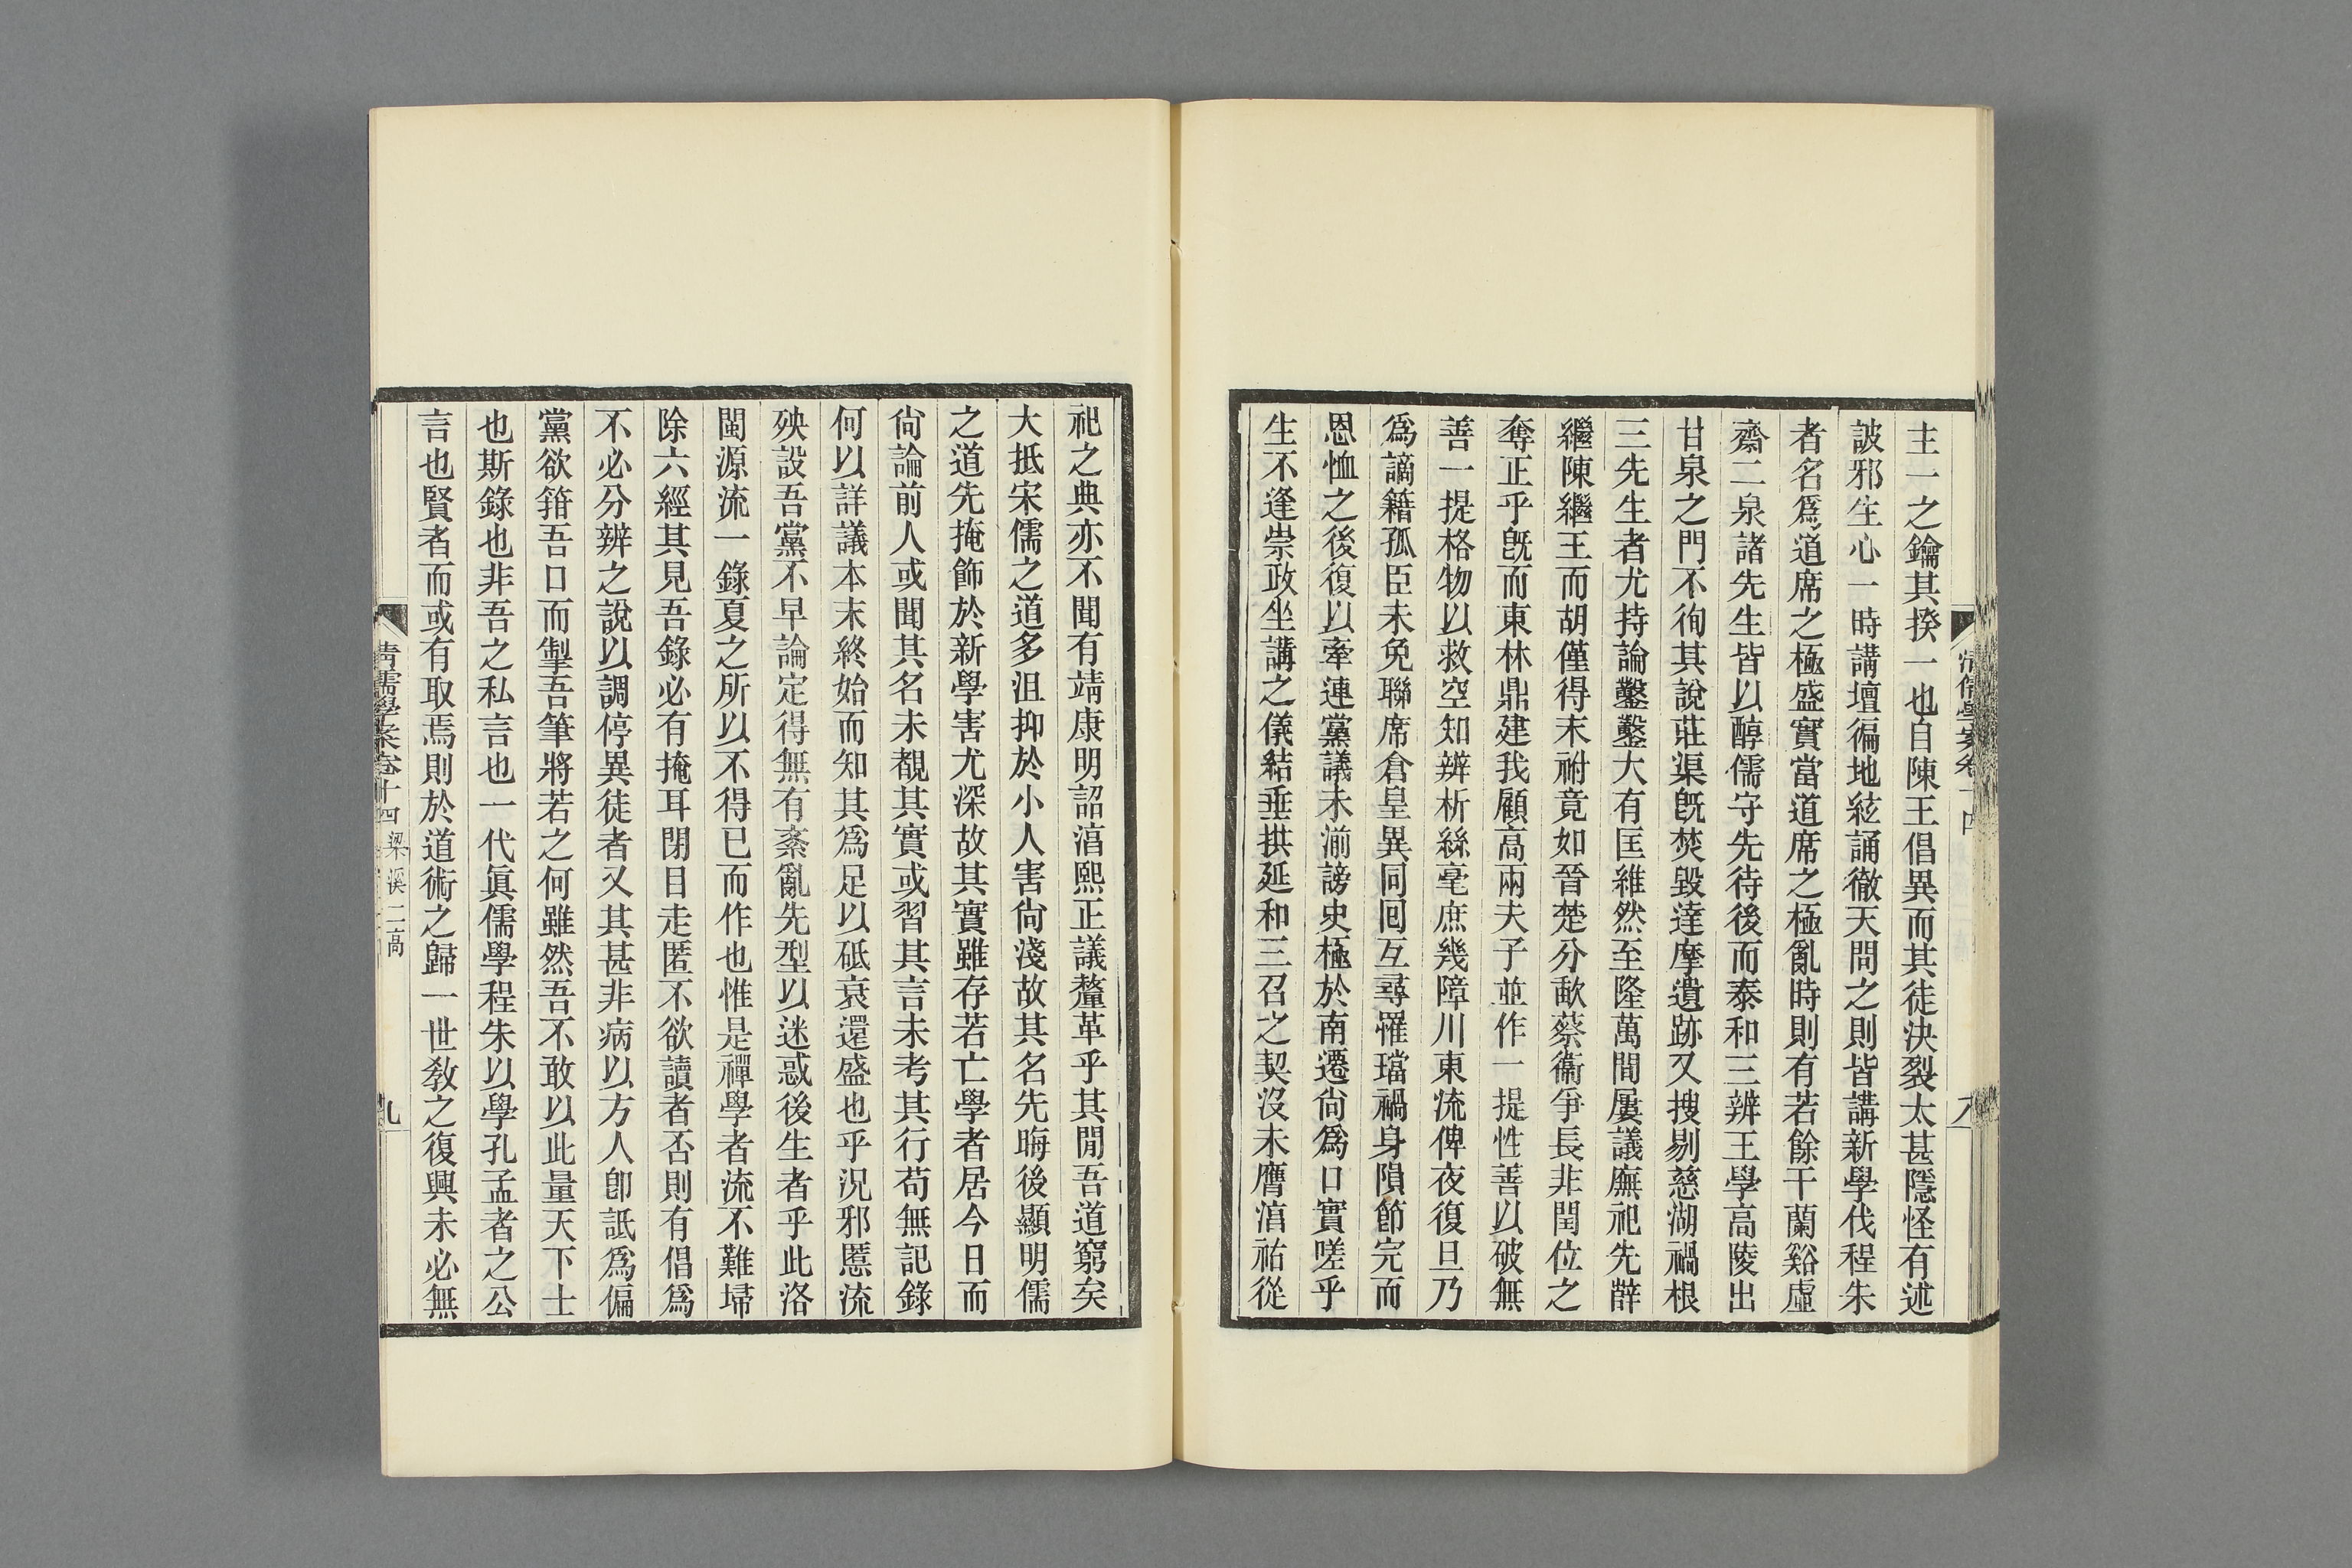 主一之鑰其揆一也自陳王倡異而其徒決裂太甚隱怪有述
詖邪生心一時講壇徧地絃誦徹天問之則皆講新學伐程朱
者名爲道席之極盛實當道席之極亂時則有若餘干蘭谿虛
齋二泉諸先生皆以醇儒守先待後而泰和三辨王學高陵出
甘泉之門不徇其說莊渠旣焚毀達摩遺跡又搜剔慈湖禍根
三先生者尤持論鑿鑿大有匡維然至隆萬間屢議廡祀先辥
繼陳繼王而胡僅得末祔竟如晉楚分歃蔡衞爭長非閏位之
奪正乎旣而東林鼎建我顧高兩夫子並作一提性善以破無
善一提格物以救空知辨析絲毫庶幾障川東流俾夜復旦乃
爲謫籍孤臣未免聯席倉皇異同囘互尋罹璫禍身隕節完而
恩恤之後復以牽連黨議未湔謗史極於南遷尙爲口實嗟乎
生不逢崇政坐講之儀結垂拱延和三召之契沒未膺湻祐從
祀之典亦不聞有靖康明詔湻熙正議釐革乎其閒吾道窮矣
大抵宋儒之道多沮抑於小人害尙淺故其名先晦後顯明儒
之道先掩飾於新學害尤深故其實雖存若亡學者居今日而
尙論前人或聞其名未覩其實或習其言未考其行苟無記錄
何以詳議本末終始而知其爲足以砥衰還盛也乎況邪慝流
殃設吾黨不早論定得無有紊亂先型以迷惑後生者乎此洛
閩源流一錄夏之所以不得已而作也惟是禪學者流不難埽
除六經其見吾錄必有掩耳閉目走匿不欲讀者否則有倡爲
不必分辨之說以調停異徒者又其甚非病以方人卽詆爲偏
黨欲箝吾口而掣吾筆將若之何雖然吾不敢以此量天下士
也斯錄也非吾之私言也一代眞儒學程朱以學孔孟者之公
言也賢者而或有取焉則於道術之歸一世敎之復興未必無
清儒學案卷十四 梁溪二高
九